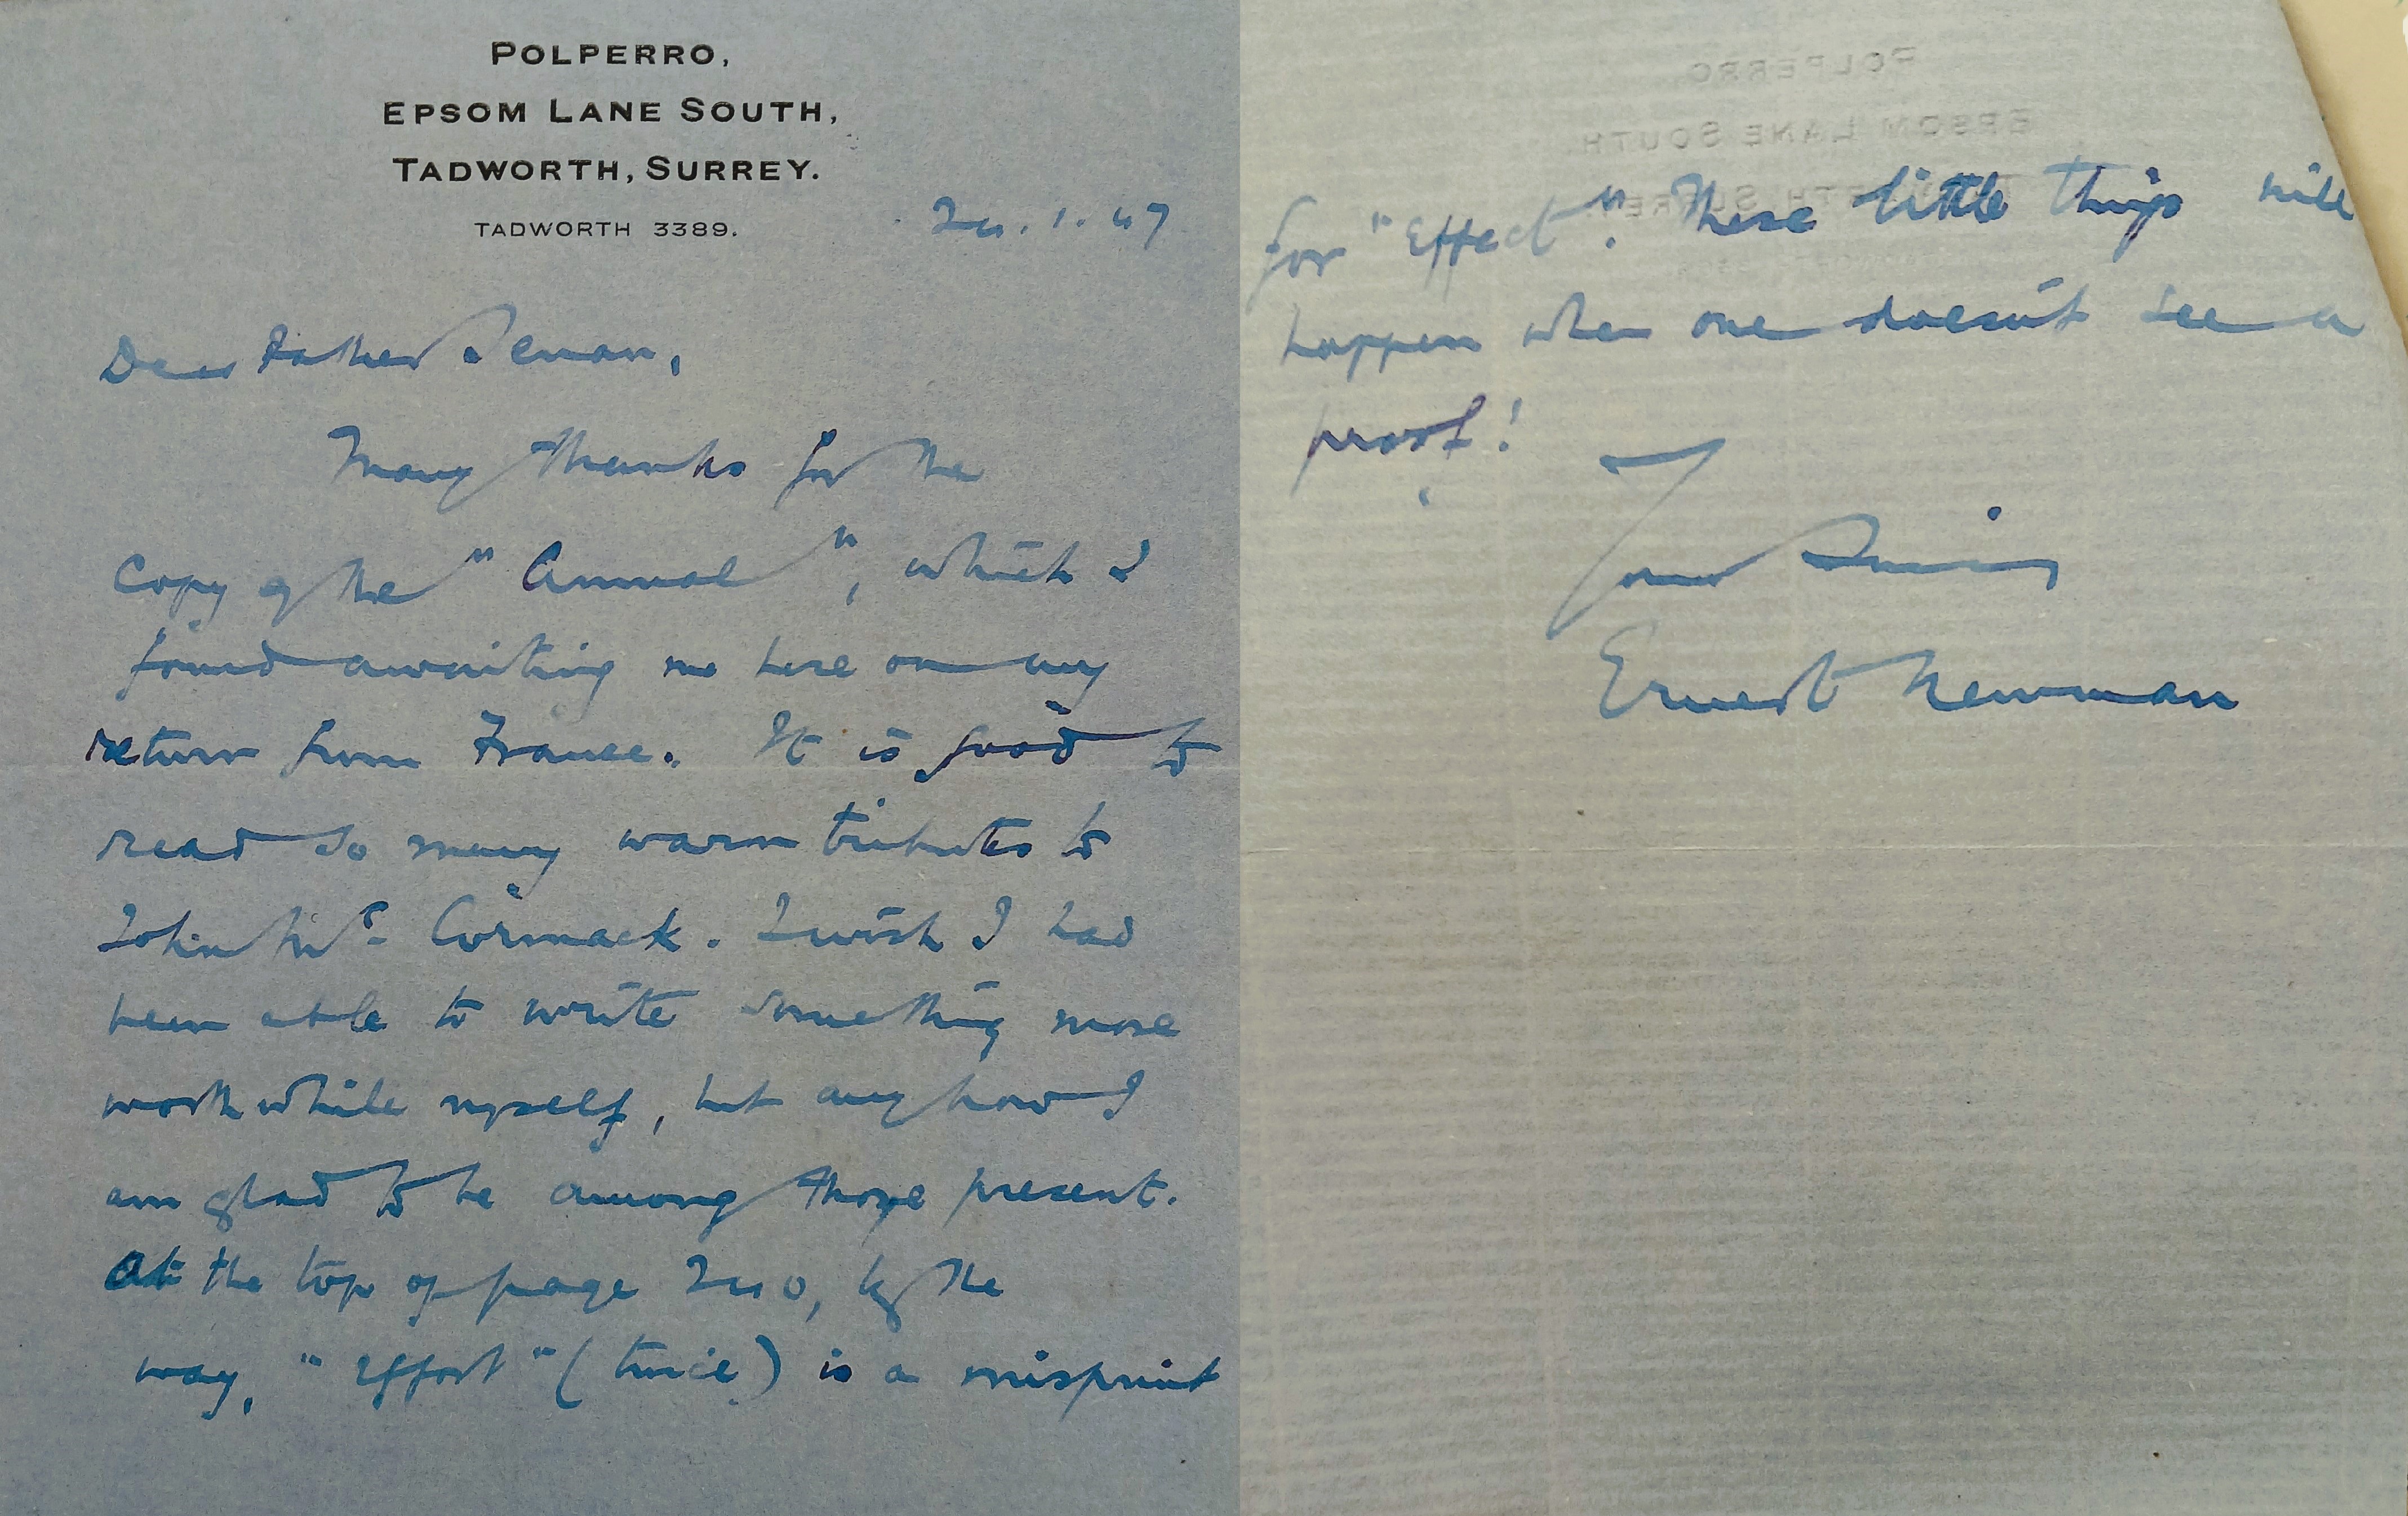 POLPERRO,
EPSOM LANE SOUTH,
TADWORTH, SURREY.
TADWORTH 3389.
24.1.47
Dear Father Senan,
Many thanks for the
copy of the "Annual", which I
found awaiting me here on my
return from France. It is good to
read so many warm tributes to
John McCormack. I wish I had
been able to write something more
worth while myself, but anyhow I
am glad to be among those present.
At the top of page 240, by the
way, "effort" (twice) is a misprint
for "effect". These little things will
happen when one doesn't see a
proof!
Your sincerely
Ernest Newman